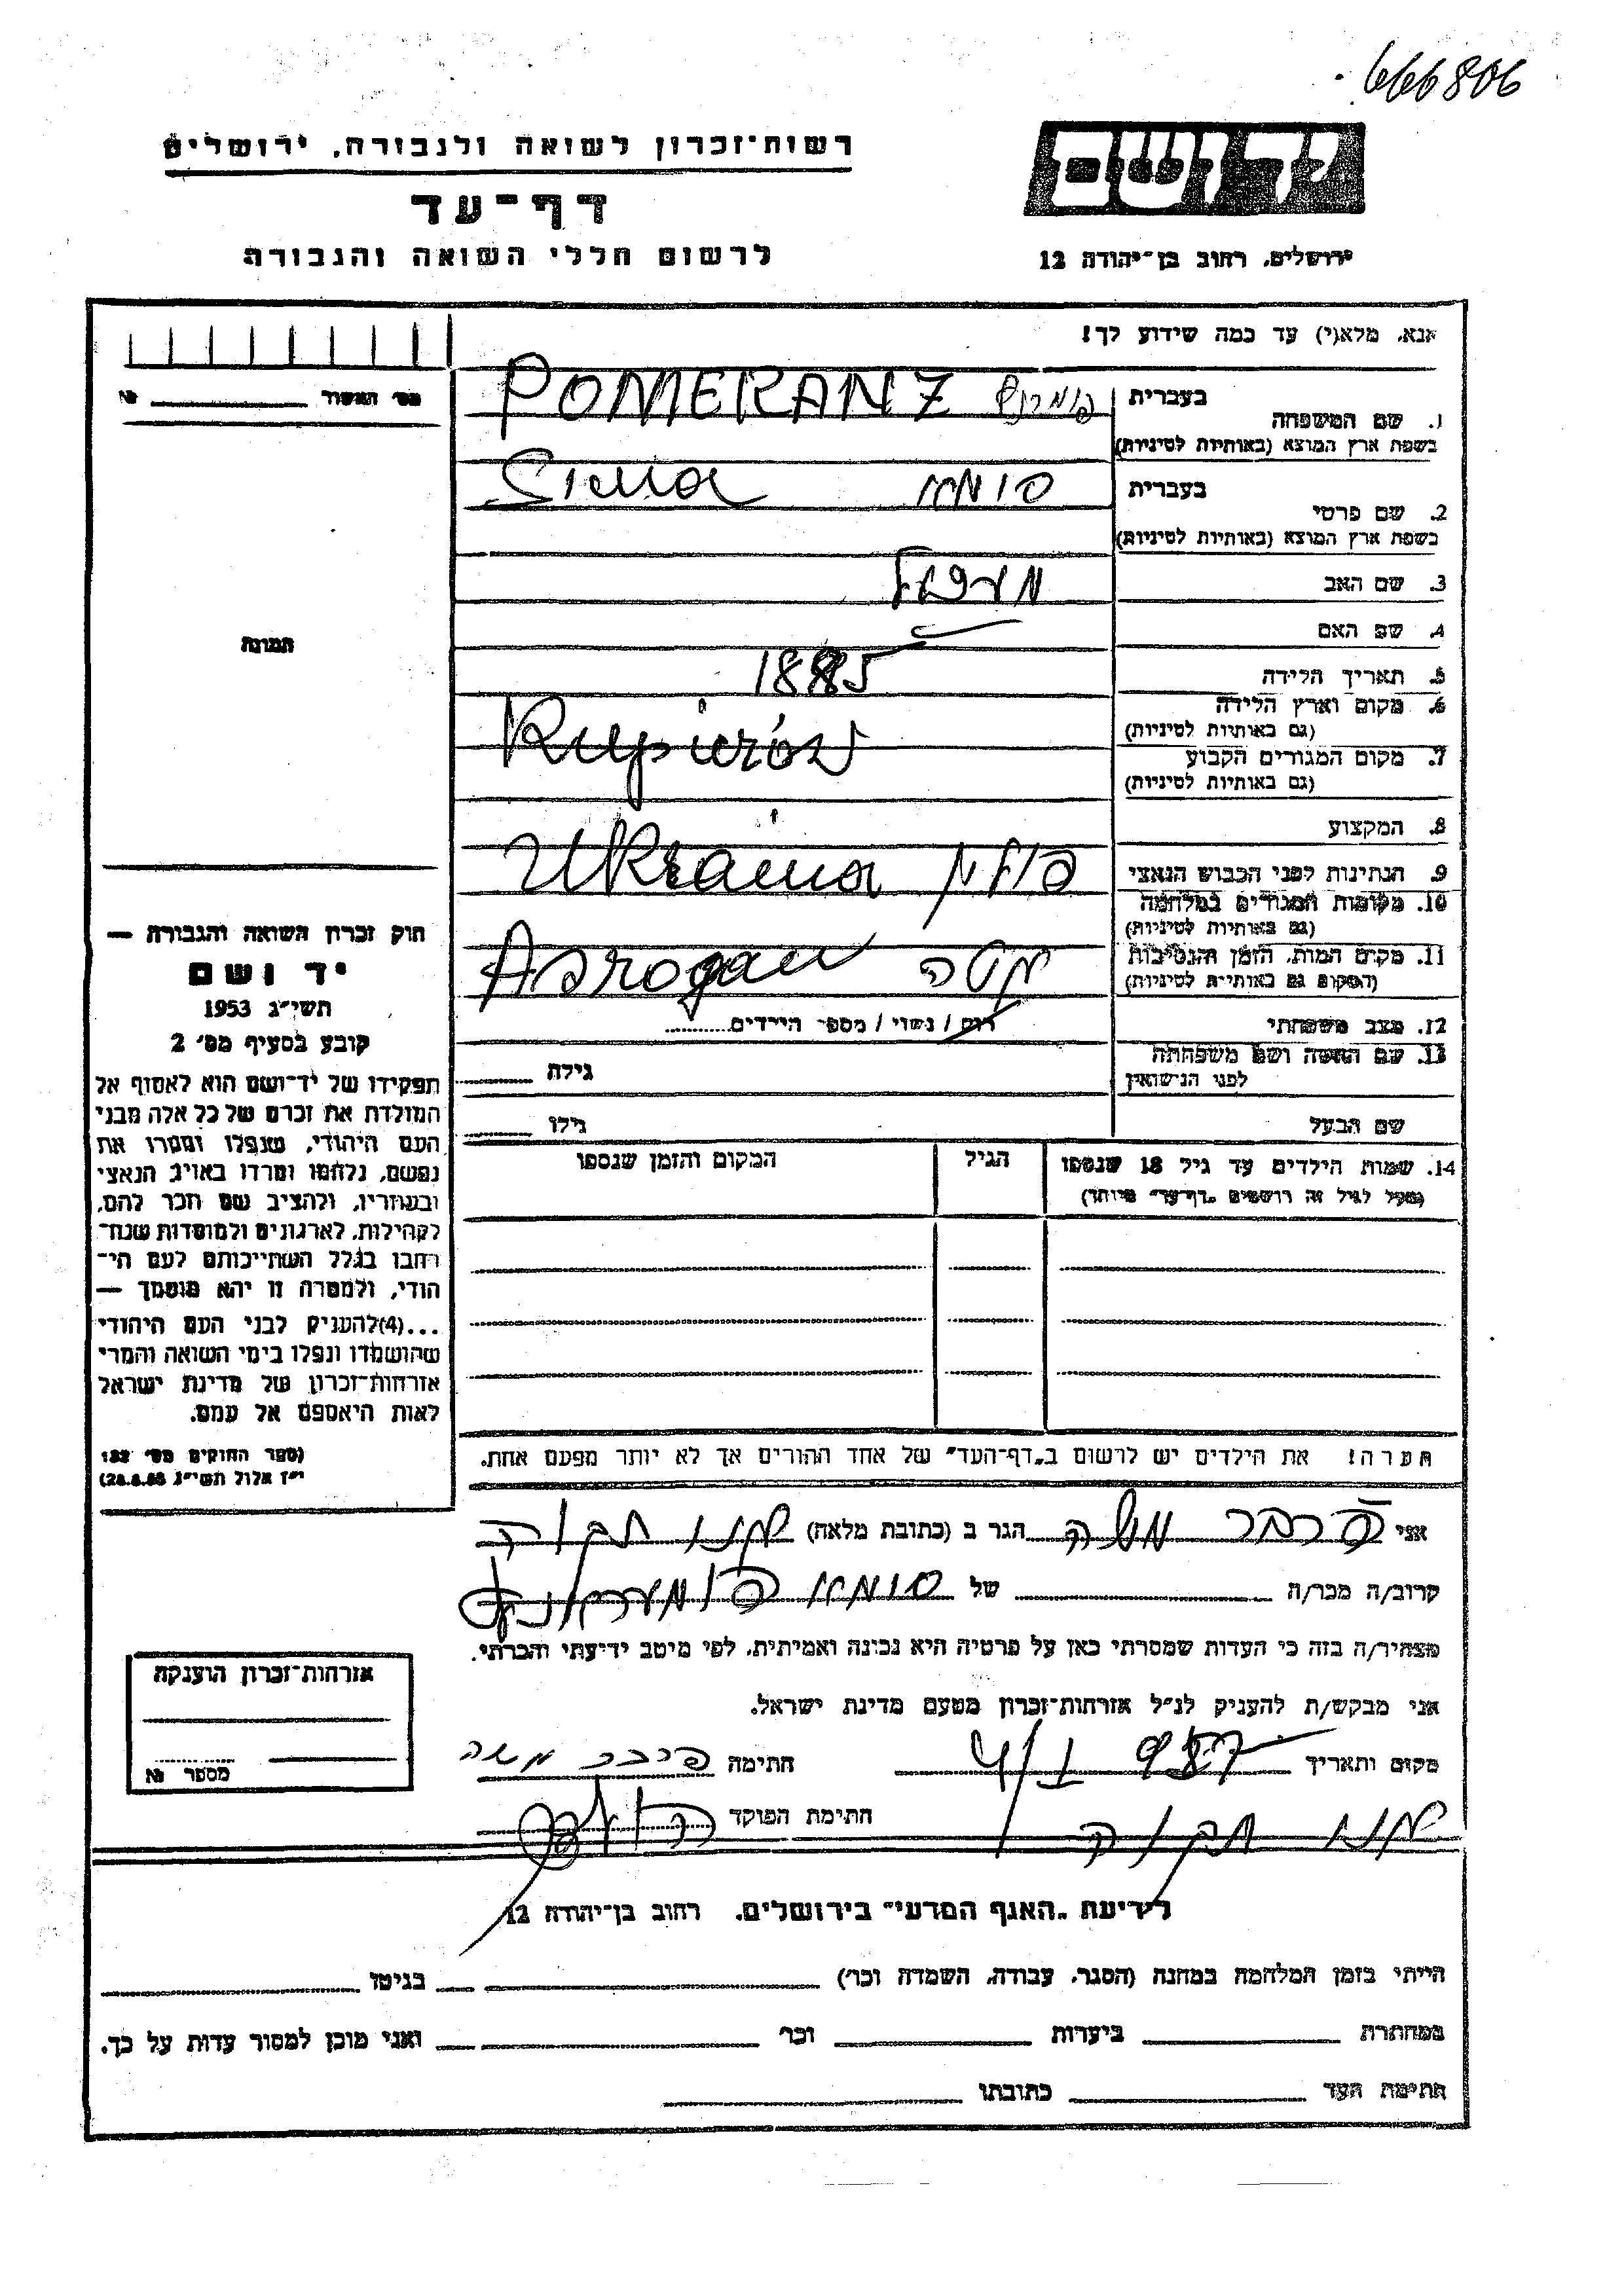 666806
רשות־זכרון לשואה ולגבורה, ירושלים
ידושם
דף־עד
לרשום חללי השואה והגבורה
ירושלים, רחוב בן־יהודה 12
אנא, מלא(י) עד כמה שידוע לך!
מס׳ האשור № 
בעברית
1. שם המשפחה
POMERANZ
בשפת ארץ המוצא (באותיות לטיניות)
בעברית
2. שם פרטי
Sima סימה
בשפת ארץ המוצא (באותיות לטיניות)
3. שם האב
4. שם האם
5. תאריך הלידה 1885
6. מקום וארץ הלידה
(גם באותיות לטיניות)
7. מקום המגורים הקבוע
(גם באותיות לטיניות)
8. המקצוע
9. הנתינות לפני הכבוש הנאצי
Ukraina פולין
10. מקומות המגורים במלחמה
(גם באותיות לטיניות)
11. מקום המות, הזמן והנסיבות
(המקום גם באותיות לטיניות)
12. מצב משפחתי רווק / נשוי / מספר הילדים
13. שם האשה ושם משפחתה גילה
לפני הנישואין
שם הבעל גילו
תמונה
חוק זכרון השואה והגבורה —
יד ושם
תשי״ג 1953
קובע בסעיף מס׳ 2
תפקידו של יד־ושם הוא לאסוף אל
המולדת את זכרם של כל אלה מבני
העם היהודי, שנפלו ומסרו את
נפשם, נלחמו ומרדו באויב הנאצי
ובעוזריו, ולהציב שם וזכר להם,
לקהילות, לארגונים ולמוסדות שנח־
רחבו בגלל השתייכותם לעם הי־
הודי, ולמטרה זו יהא מוסמך —
...(4)להעניק לבני העם היהודי
שהושמדו ונפלו בימי השואה והמרי
אזרחות־זכרון של מדינת ישראל
לאות היאספם אל עמם.
(ספר החוקים מס׳ 132
י״ז אלול תשי״ג 28.8.53)
14. שמות הילדים עד גיל 18 שנספו הגיל המקום והזמן שנספו
(מעל לגיל זה רושמים „דף־עד״ מיוחד)
הערה! את הילדים יש לרשום ב„דף־העד״ של אחד ההורים אך לא יותר מפעם אחת.
אני פרבר משה הגר ב (כתובת מלאה)
קרוב/ה מכר/ה של סימה
מצהיר/ה בזה כי העדות שמסרתי כאן על פרטיה היא נכונה ואמיתית, לפי מיטב ידיעתי והכרתי.
אני מבקש/ת להעניק לנ״ל אזרחות־זכרון מטעם מדינת ישראל.
מקום ותאריך חתימה פרבר משה
חתימת הפוקד
אזרחות־זכרון הוענקה
מספר №
לידיעת „האגף המדעי״ בירושלים, רחוב בן־יהודה 12
הייתי בזמן המלחמה במחנה (הסגר, עבודה, השמדה וכו׳) בגיטו
במחתרת ביערות וכו׳ ואני מוכן למסור עדות על כך.
חתימת העד כתובתו